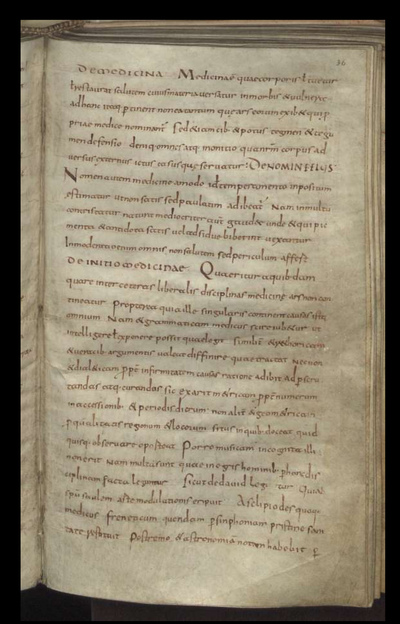 56
DE MEDICINA Medicina est quae corporis
vel restaurat salutem cuius materia versatur in morbis & vulnerib;
ad hanc itaq; pertinent non ea tantum quae ars eorum exhib& qui p
priae medici nominant̄ sed &iam cib; & potus tegmen & tegu
men defensio deniq; omnes atq; munitio qua corpus ad
versus externos ictus casusq; servatur DE NOMINE EIUS
Nomen autem medicine a modo id temperamento inpositum
estimatur ut non satis sed paulatim adhibeat̄ Nam in multo
contristatur natura mediocriter aut̄ gaud& unde & qui pig
menta & antidota satis vel adsidue biberint vexantur
Inmoderatio enim omnis non salutem sed periculum adfert
DE INITIO MEDICINAE Quaeritur a quibusdam
quare inter ceteras liberalis disciplinas medicinae ars non con
tineatur Propterea quia ille singularis continent causas iste
omnium Nam & grammaticam medicus scire iub&ur ut
intellegere & exponere possit quae legit Similit̄ & r&horicam
& veracib; argumentis valeat diffinire quae tractat Necnon
& dialecticam ppt̄ infirmitatem causas ratione adibit ad pscru
tandas atq; curandas sic & arithm&ricam ppt̄ numerum
in accessionib; & periodis dierum non alit̄ & geom&ricam
p qualitates regionum & locorum situs in quib; doceat quid
quisq; observare oporteat Porro musicam incognita illi
non erit Nam multa sunt quae in egris hominib; p hanc dis
ciplinam facta leguntur Sicut de david legitur qui a
spū saulem arte modulationis eripuit Asclepiades quoq;
medicus freneticum quendam p sinphoniam pristine sani
tate restituit Postremo & astronomiā notam habebit p